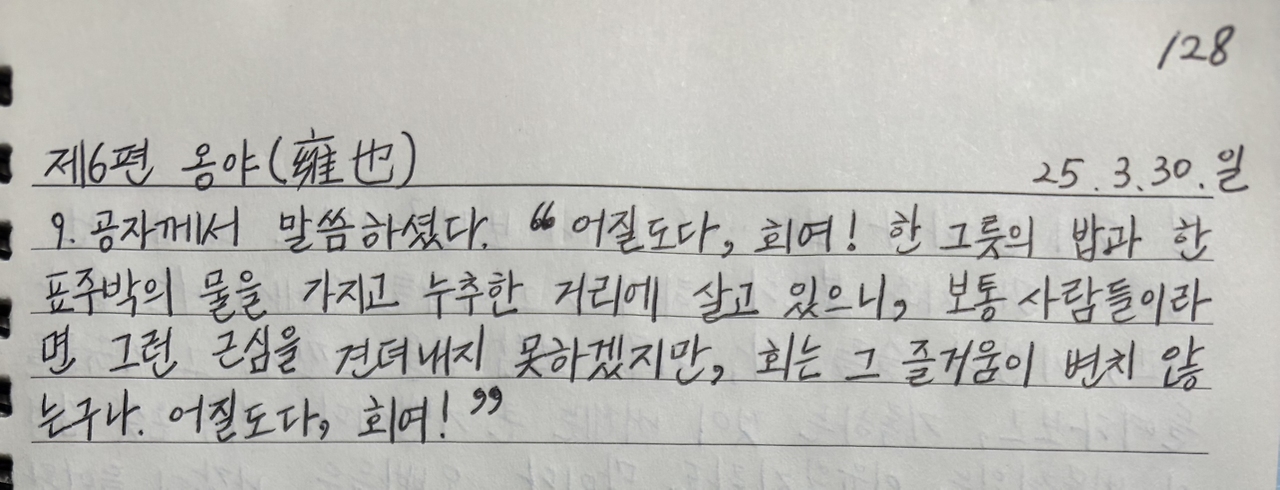 128
제6편 옹야(雍也) 25.3.30.일
9. 공자께서 말씀하셨다. “어질도다, 회여! 한 그릇의 밥과 한
표주박의 물을 가지고 누추한 거리에 살고 있으니, 보통 사람들이라
면 그런 근심을 견뎌내지 못하겠지만, 회는 그 즐거움이 변치 않
는구나. 어질도다, 회여!”